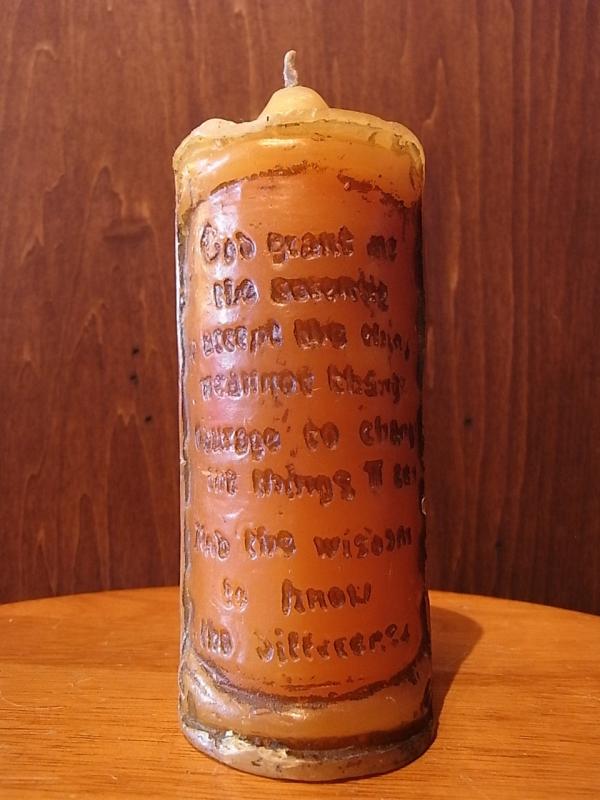 God grant me
the serenity
accept the thin
cannot chang
courage to chang
the things I can
And the wisdom
to know
the difference